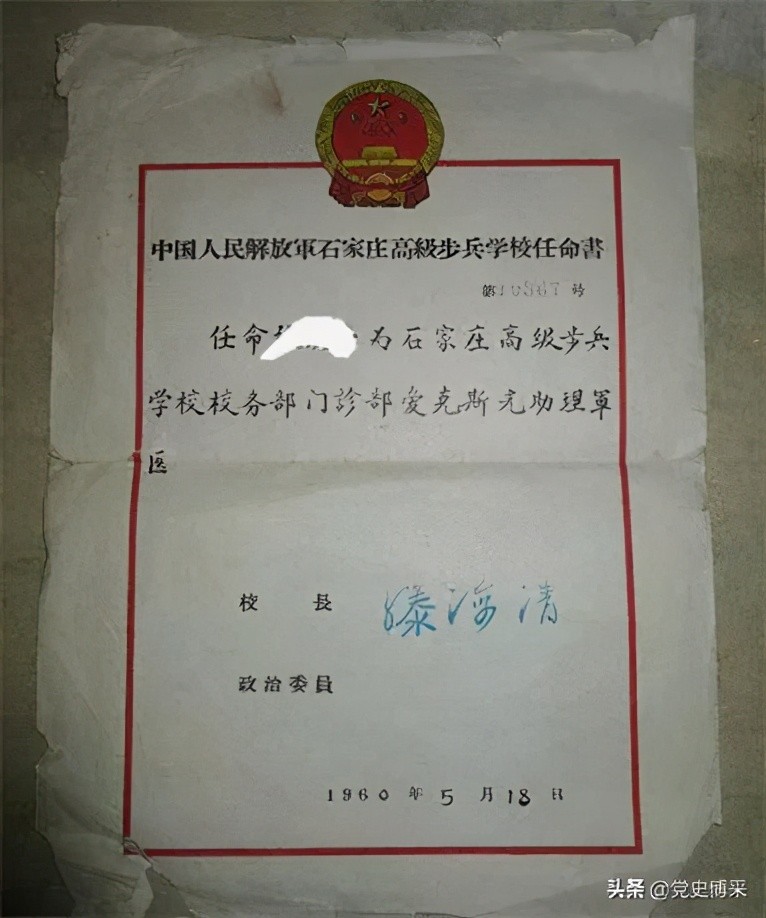 中国人民解放軍石家庄高級步兵学校任命書
第10367号
任命 为石家庄高级步兵
学校校务部门診部爱克斯光助理軍
医
校 長 滕海清
政治委員
1960年5月18日
头条 @党史博采